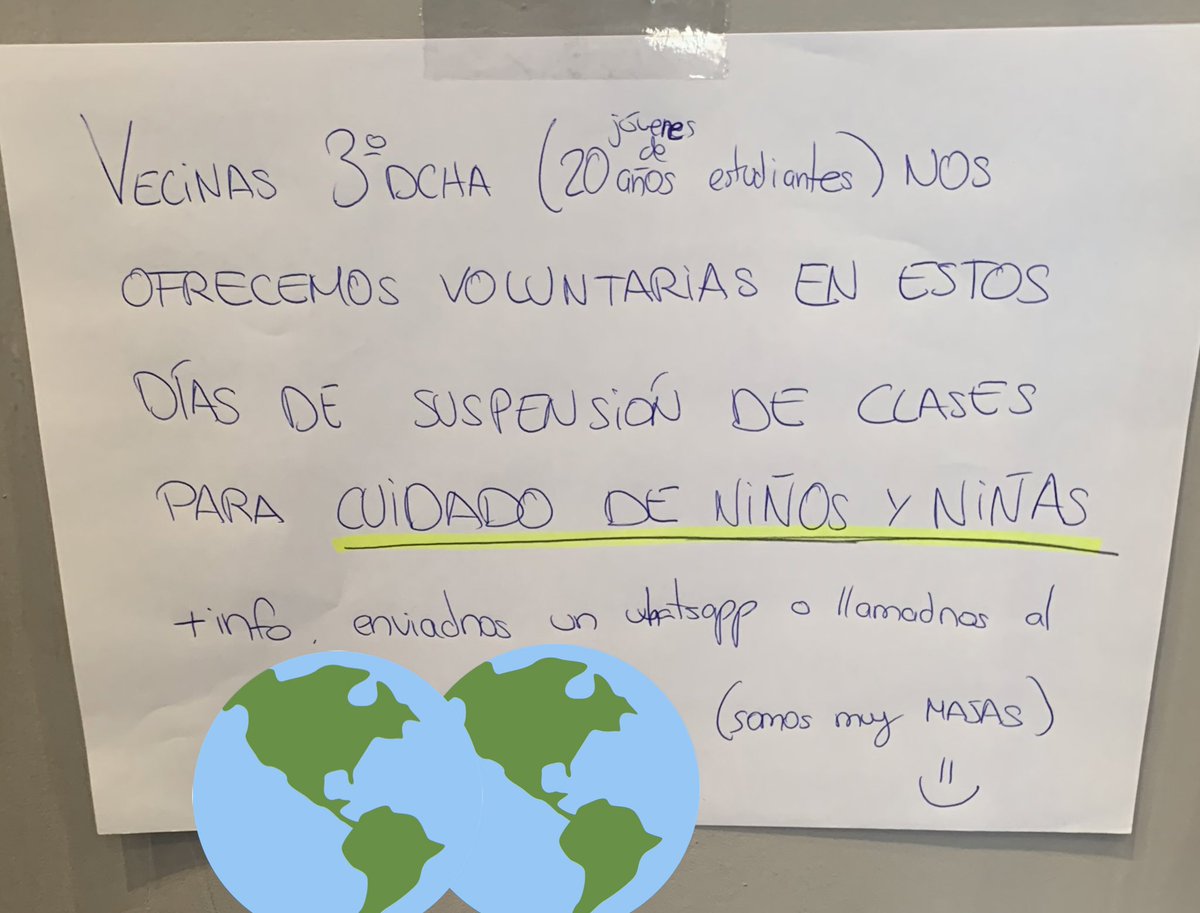 VECINAS 3º DCHA (20 jóvenes de años estudiantes) NOS
OFRECEMOS VOLUNTARIAS EN ESTOS
DÍAS DE SUSPENSIÓN DE CLASES
PARA CUIDADO DE NIÑOS Y NIÑAS
+info. enviadnos un whatsapp o llamadnos al
(somos muy MAJAS)